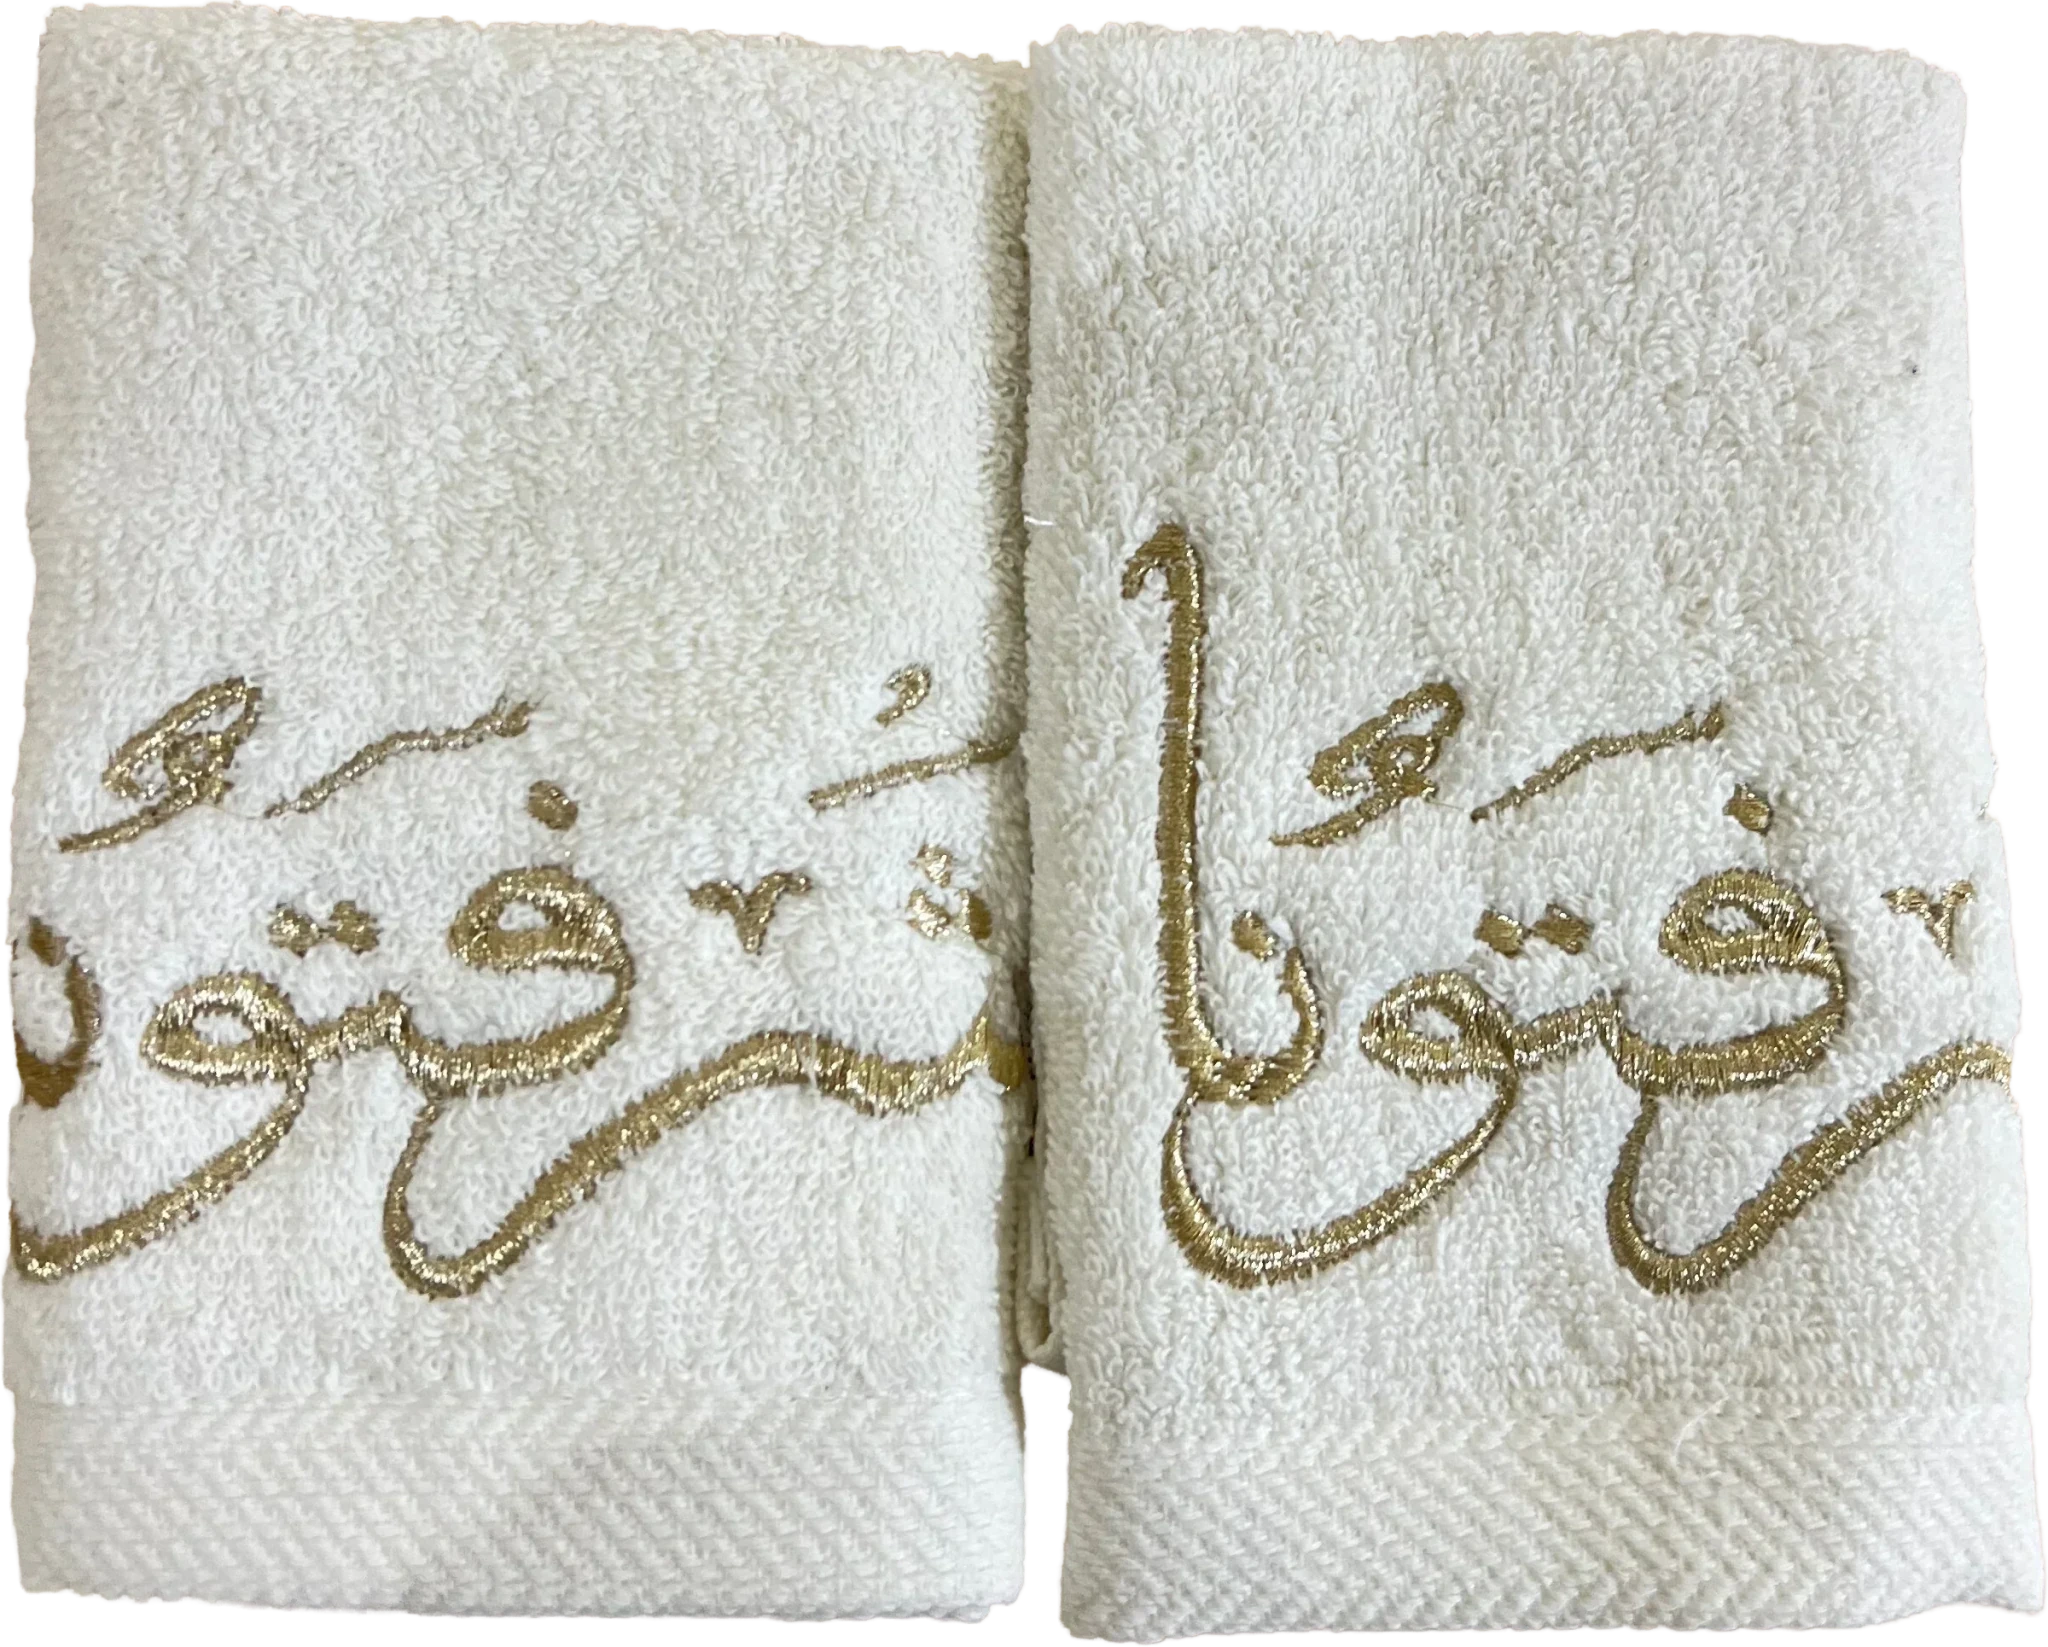 رفتونا
شرفتون